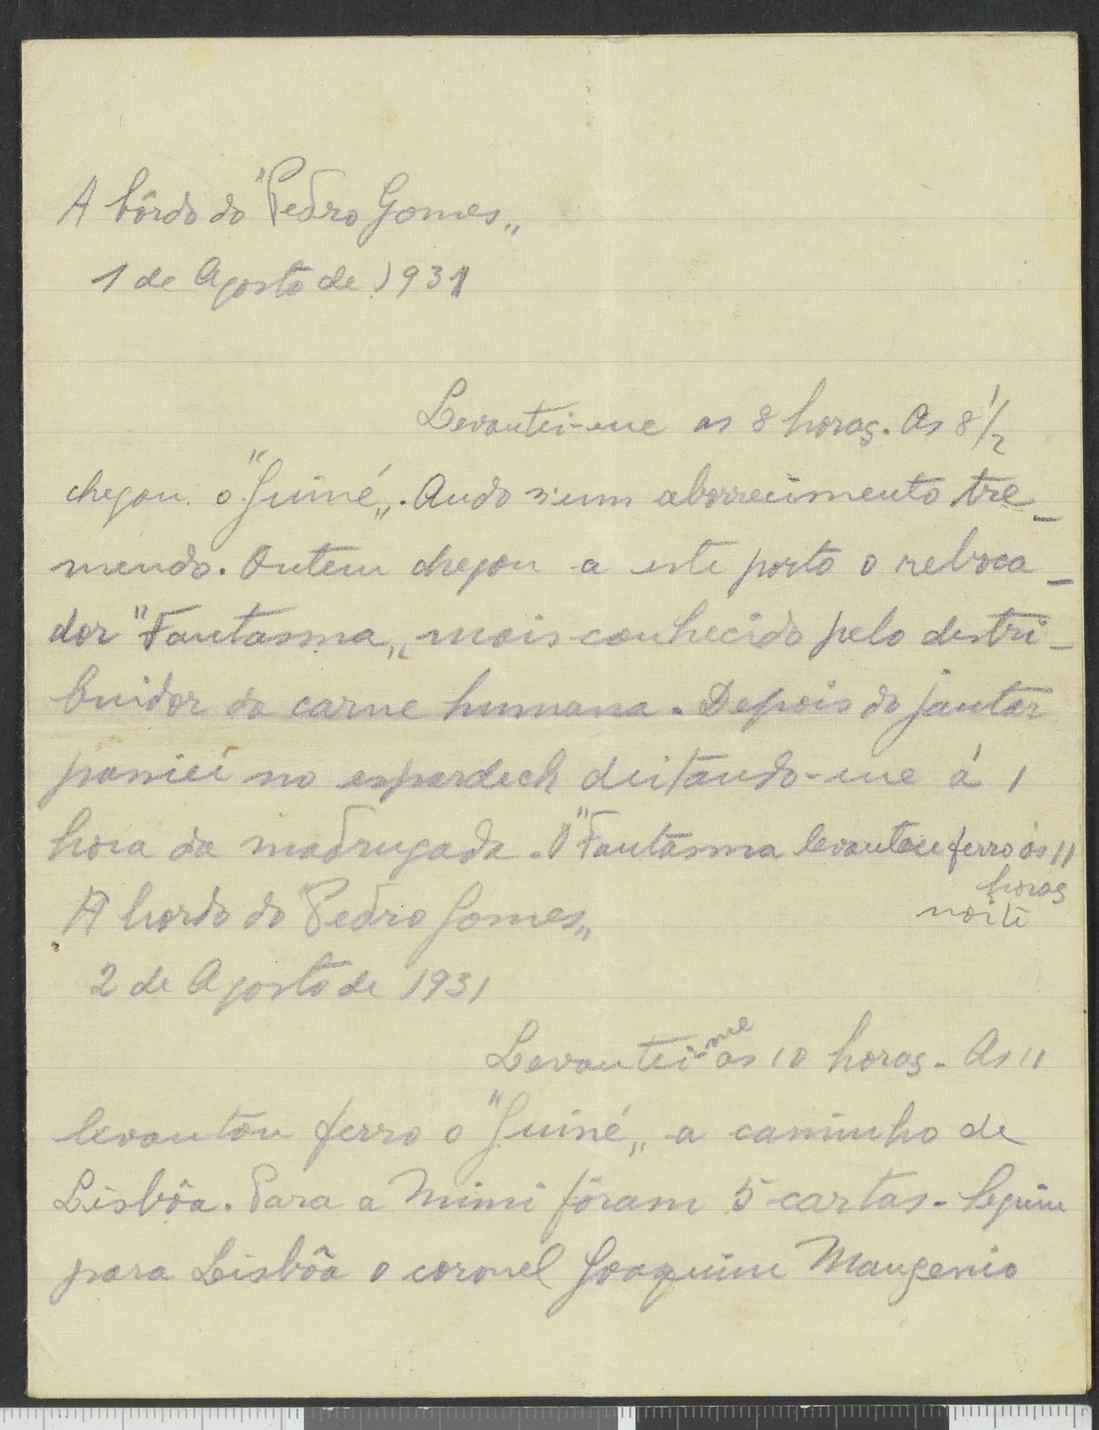 A bôrdo do "Pedro Gomes„
1 de Agosto de 1931
Levantei-me as 8 horas. As 8 1/2
chegou o "Guiné„. Ando n'um aborrecimento tre_
mendo. Ontem chegou a este porto o reboca_
dor "Fantasma„ mais conhecido pelo destri_
buidor da carne humana. Depois do jantar
passiei no espardech deitando-me á 1
hora da madrugada. O "Fantasma levantou ferro ás 11
horas
noite
A bordo do "Pedro Gomes„
2 de Agosto de 1931
Levantei-me as 10 horas. As 11
levantou ferro o "Guiné„ a caminho de
Lisbôa. Para a Mimi fôram 5 cartas. Seguiu
para Lisbôa o coronel Joaquim